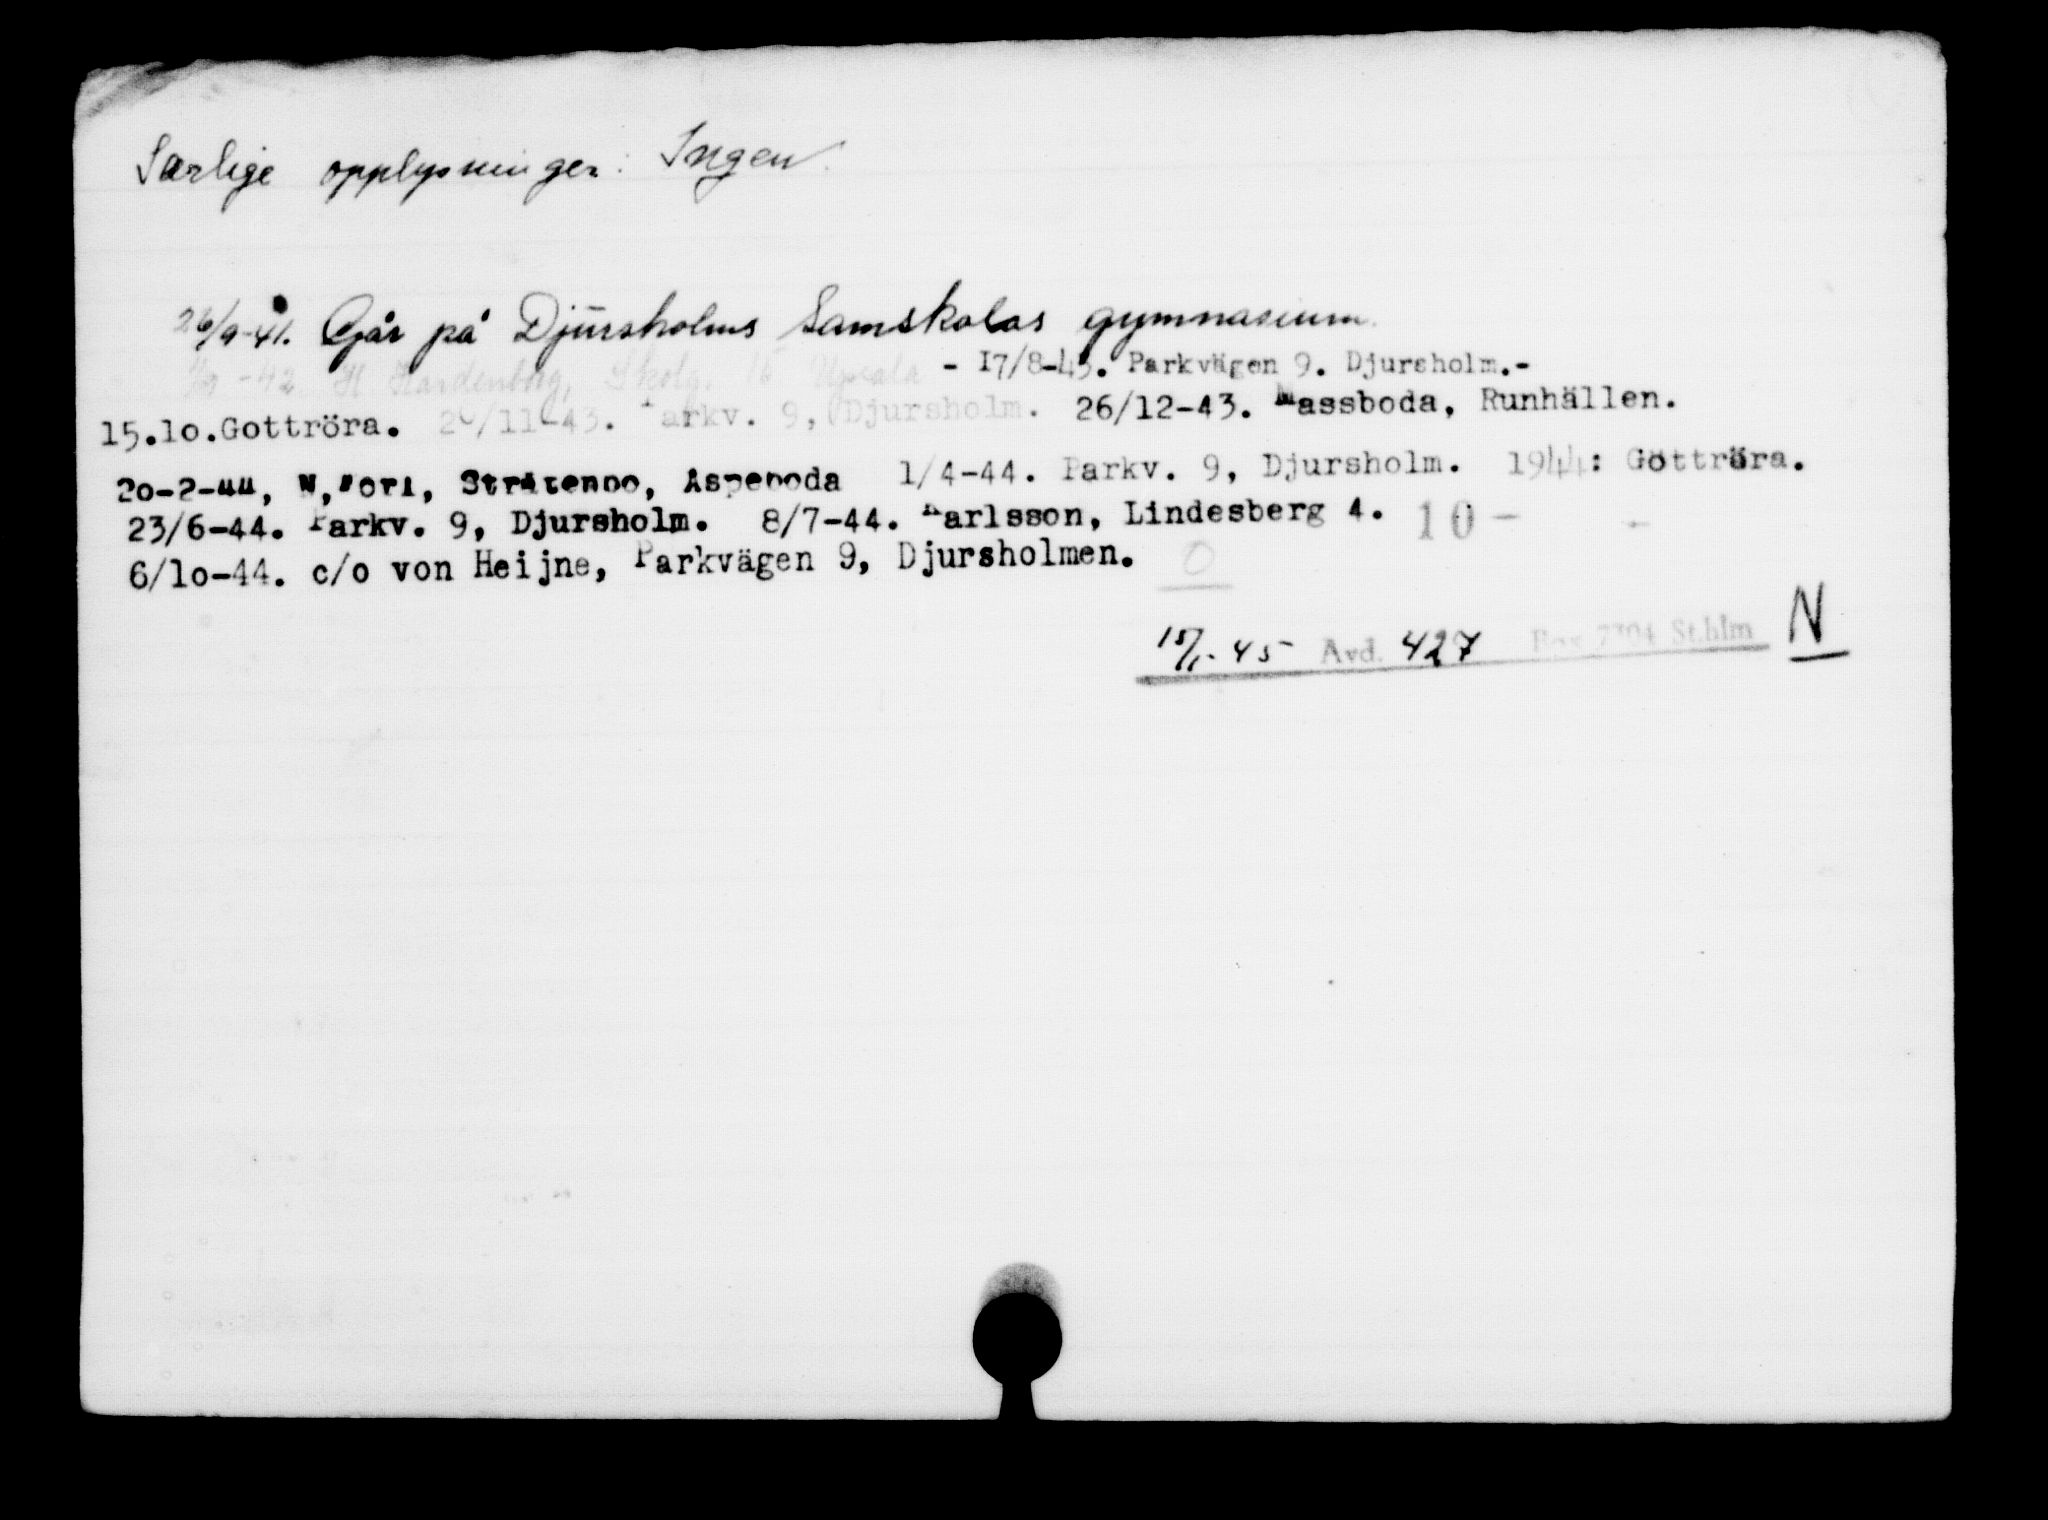 Særlige opplysninger: Ingen.
26/9-41. Går på Djursholms Samskolas gymnasium.
-42 H Hardenborg, Skolg. 15 Upsala - 17/8-43. Parkvägen 9. Djursholm.-
15.10.Gottröra. 20/11-43. Parkv. 9, Djursholm. 26/12-43. Massboda, Runhällen.
20-2-44, Aspeboda 1/4-44. Parkv. 9, Djursholm. 1944: Göttröra.
23/6-44. Parkv. 9, Djursholm. 8/7-44. Karlsson, Lindesberg 4. 10 -
6/10-44. c/o von Heijne, Parkvägen 9, Djursholmen. 0
15/1-45 Avd. 427 Box 7704 St.hlm N